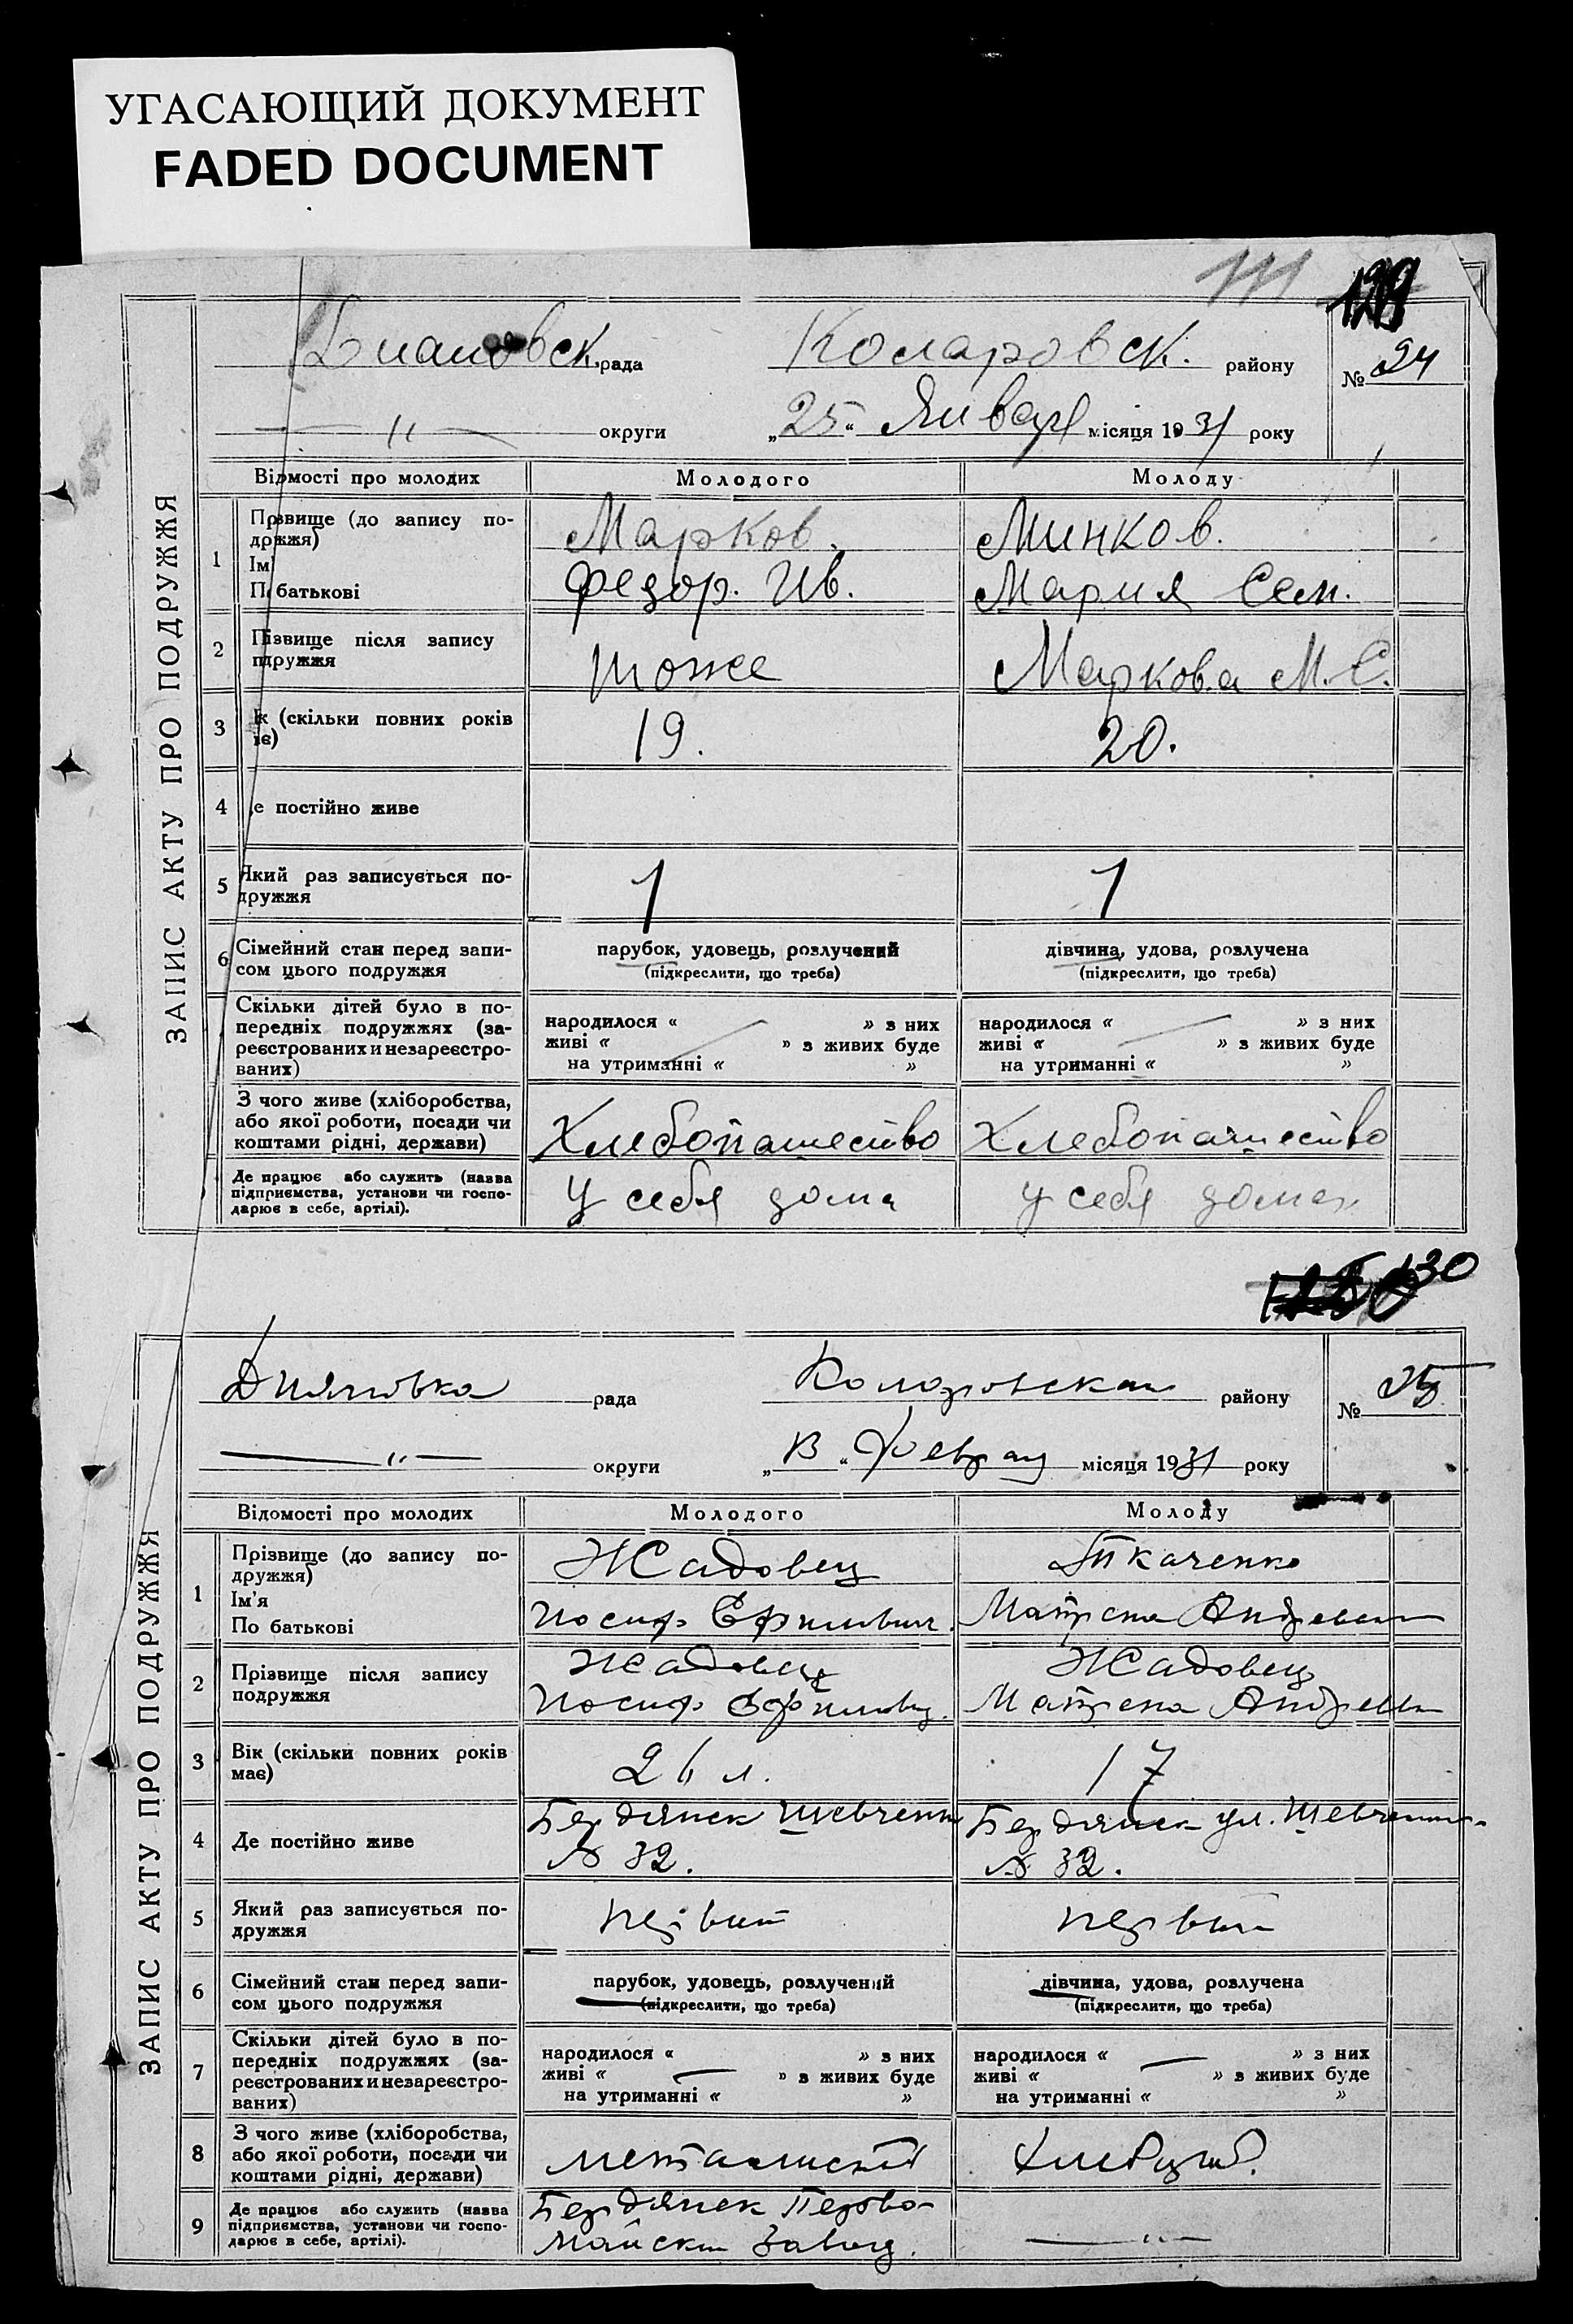 УГАСАЮЩИЙ ДОКУМЕНТ
FADED DOCUMENT
111 129
рада Коларовск. району № 24
—〃— округи „25“ Января місяця 1931 року
ЗАПИС АКТУ ПРО ПОДРУЖЖЯ
Відмості про молодих Молодого Молоду
1 Прзвище (до запису по-
држжя) Марков. Минков.
Ім
П батькові Федор. Ив. Мария Сем.
2 Пізвище після запису
пдружжя тоже Маркова М.С.
3 к (скільки повних років
ів) 19. 20.
4 е постійно живе
5 Який раз записується по-
дружжя 1 1
6 Сімейний стан перед запи-
сом цього подружжя парубок, удовець, розлучений дівчина, удова, розлучена
(підкреслити, що треба) (підкреслити, що треба)
Скільки дітей було в по-
передніх подружжях (за-
реєстрованих и незареєстро-
ваних)
народилося « » з них народилося « » з них
живі « » з живих буде живі « » з живих буде
на утриманні « » на утриманні « »
З чого живе (хліборобства,
або якої роботи, посади чи
коштами рідні, держави) Хлебопашество Хлебопашество
Де працює або служить (назва
підприємства, установи чи госпо-
дарює в себе, артілі). У себя дома У себя дома
130
рада району № 25
—〃— округи „ “ місяця 1931 року
ЗАПИС АКТУ ПРО ПОДРУЖЖЯ
Відомості про молодих Молодого Молоду
1 Прізвище (до запису по-
дружжя) Жадовец Ткаченко
Ім'я
По батькові Иосиф Матрена
2 Прізвище після запису
подружжя Жадовец Жадовец
Иосиф Матрена
3 Вік (скільки повних років
має) 26 л. 17
4 Де постійно живе Бердянск Шевченк Бердянск ул. Шевченк
№ 32. № 32.
5 Який раз записується по-
дружжя первый первый
6 Сімейний стан перед запи-
сом цього подружжя парубок, удовець, розлучений дівчина, удова, розлучена
(підкреслити, що треба) (підкреслити, що треба)
7 Скільки дітей було в по-
передніх подружжях (за-
реєстрованих и незареєстро-
ваних)
народилося « » з них народилося « » з них
живі « » з живих буде живі « » з живих буде
на утриманні « » на утриманні « »
8 З чого живе (хліборобства,
або якої роботи, посади чи
коштами рідні, держави) металист
9 Де працює або служить (назва
підприємства, установи чи госпо-
дарює в себе, артілі). Бердянск Перво- —〃—
майский Завод.